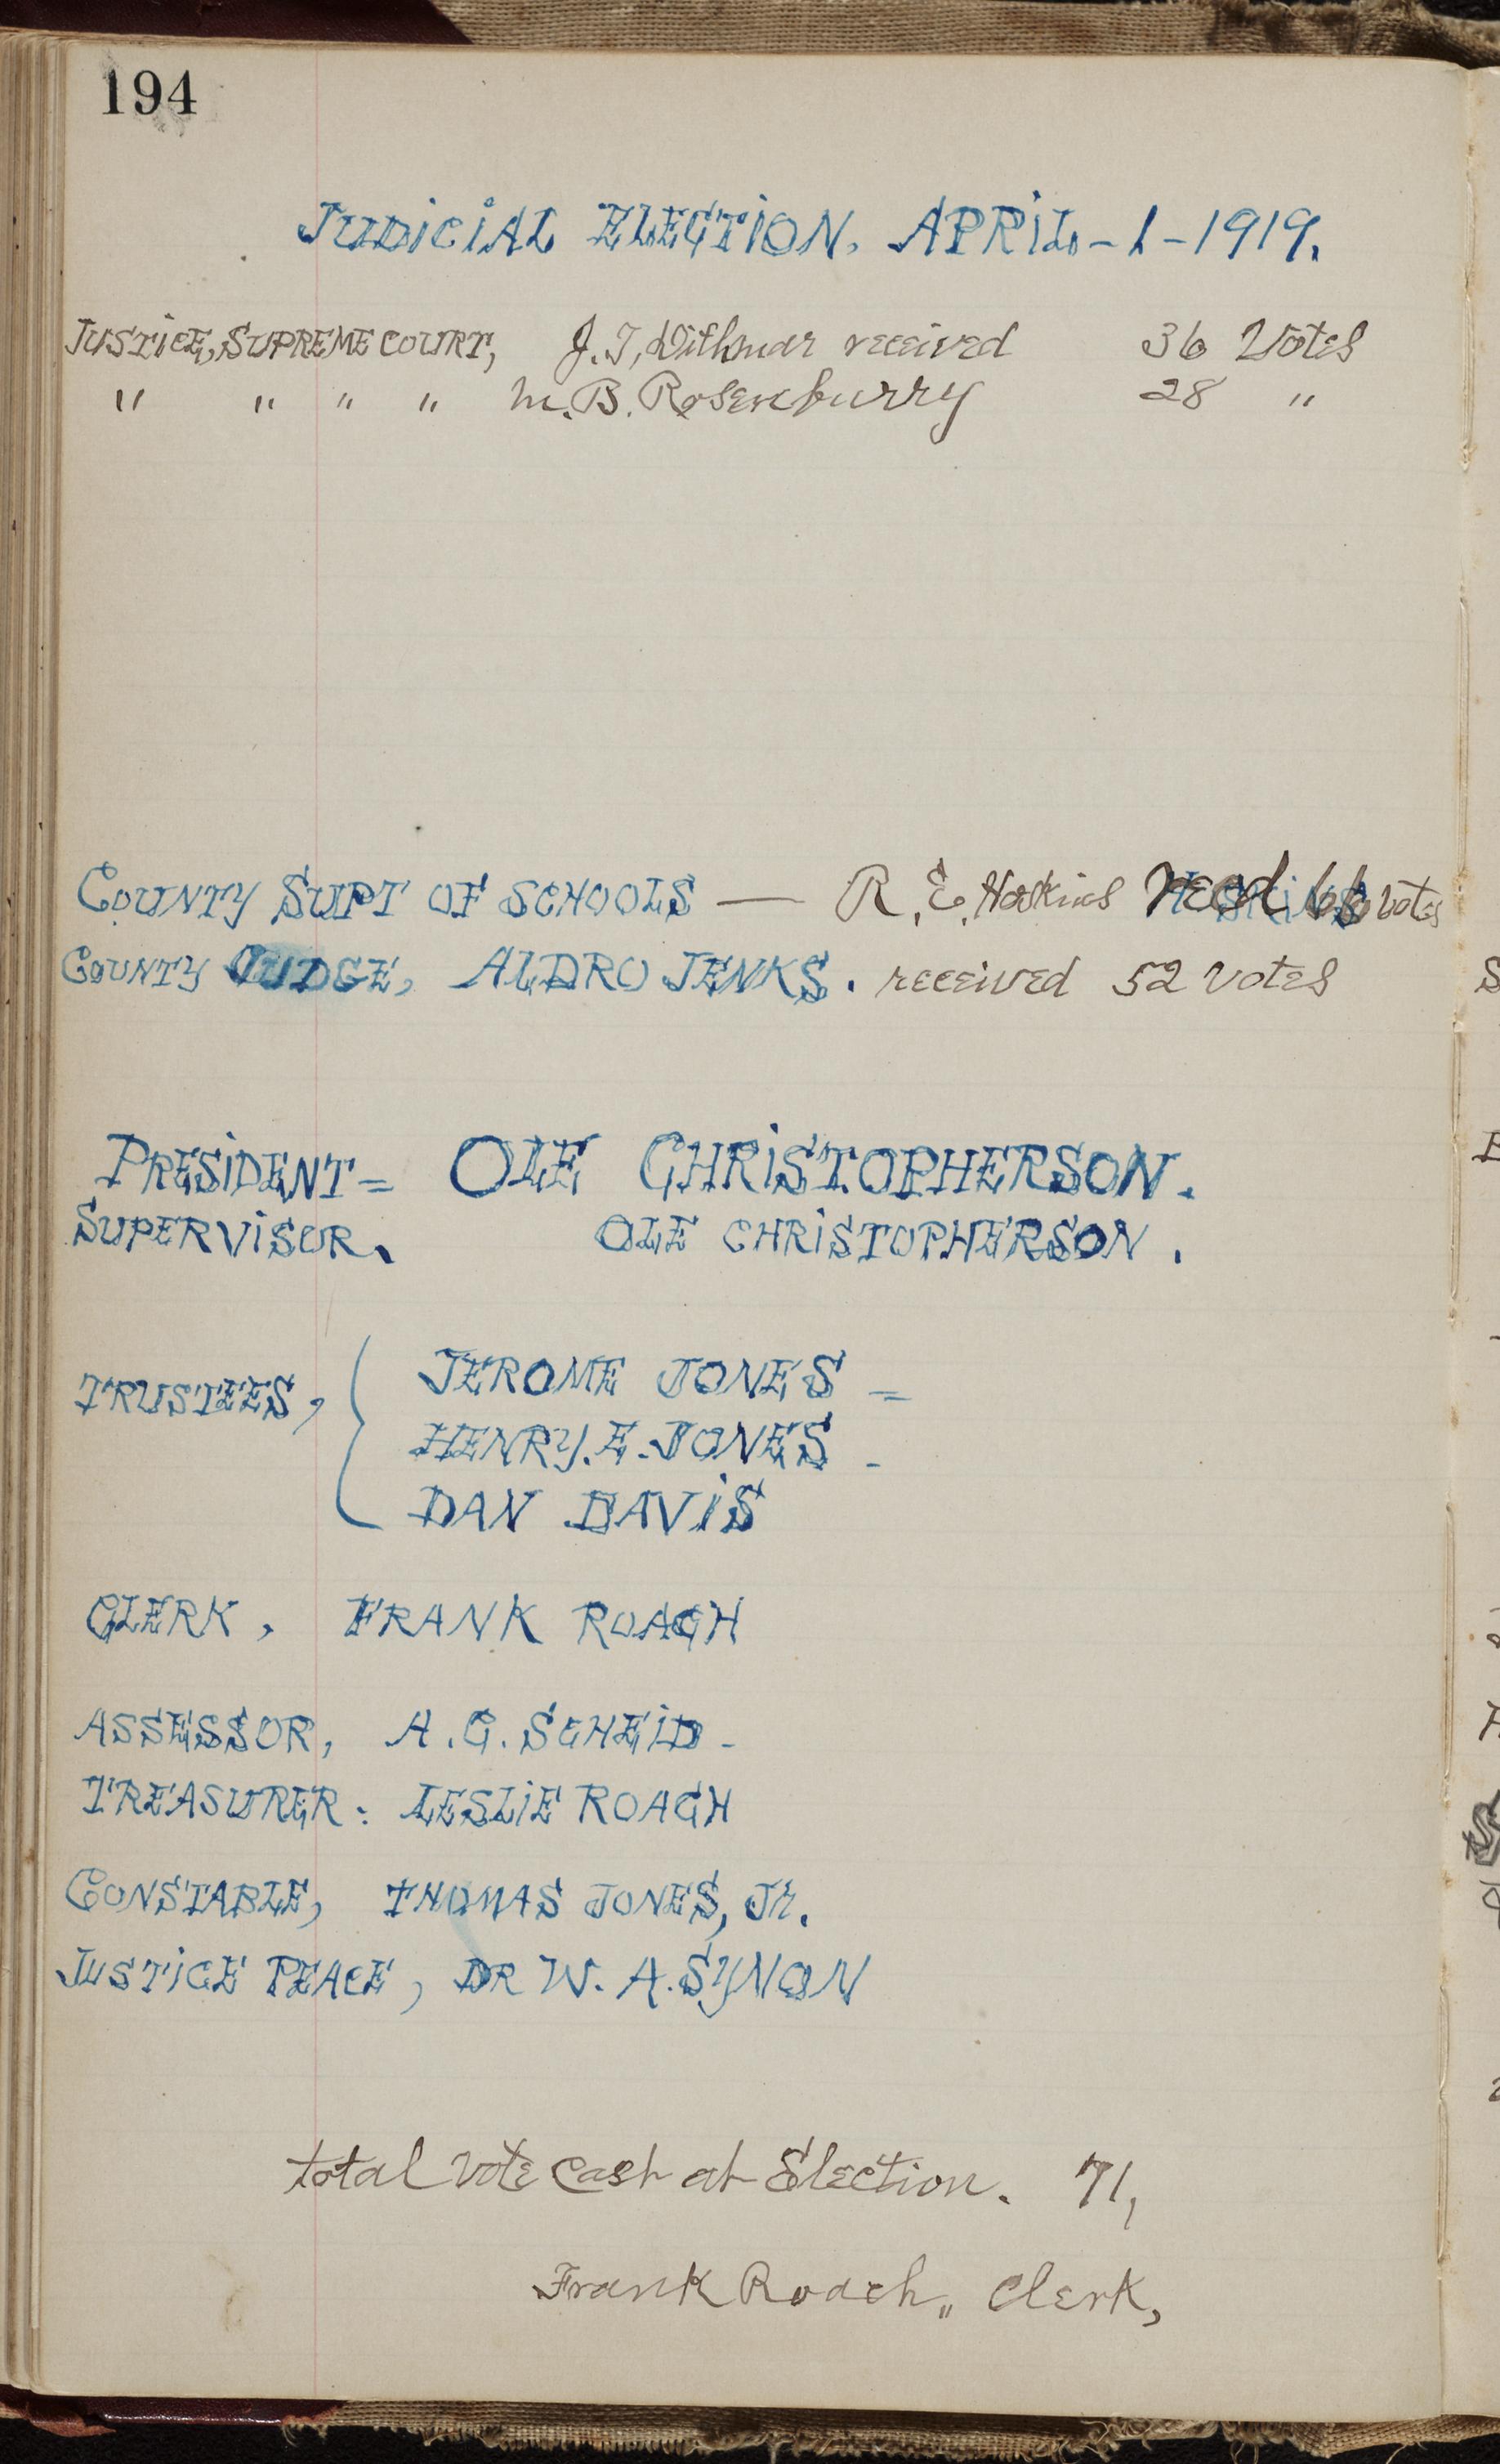 194
JUDICIAL ELECTION. APRIL-1-1919.
JUSTICE, SUPREME COURT, J. T, Dithmar received 36 Votes
" " " " M. B. Rosenburry 28 "
COUNTY SUPT OF SCHOOLS — R. E. Hoskins recd 66 votes
COUNTY JUDGE, ALDRO JENKS. received 52 votes
PRESIDENT = OLE CHRISTOPHERSON.
SUPERVISOR. OLE CHRISTOPHERSON.
TRUSTEES, { JEROME JONES =
HENRY. E. JONES -
DAN DAVIS
CLERK, FRANK ROACH
ASSESSOR, A. G. SCHEID -
TREASURER: LESLIE ROACH
CONSTABLE, THOMAS JONES, Jr.
JUSTICE PEACE, DR W. A. SYNON
total vote cast at Election. 71,
Frank Roach,, Clerk,